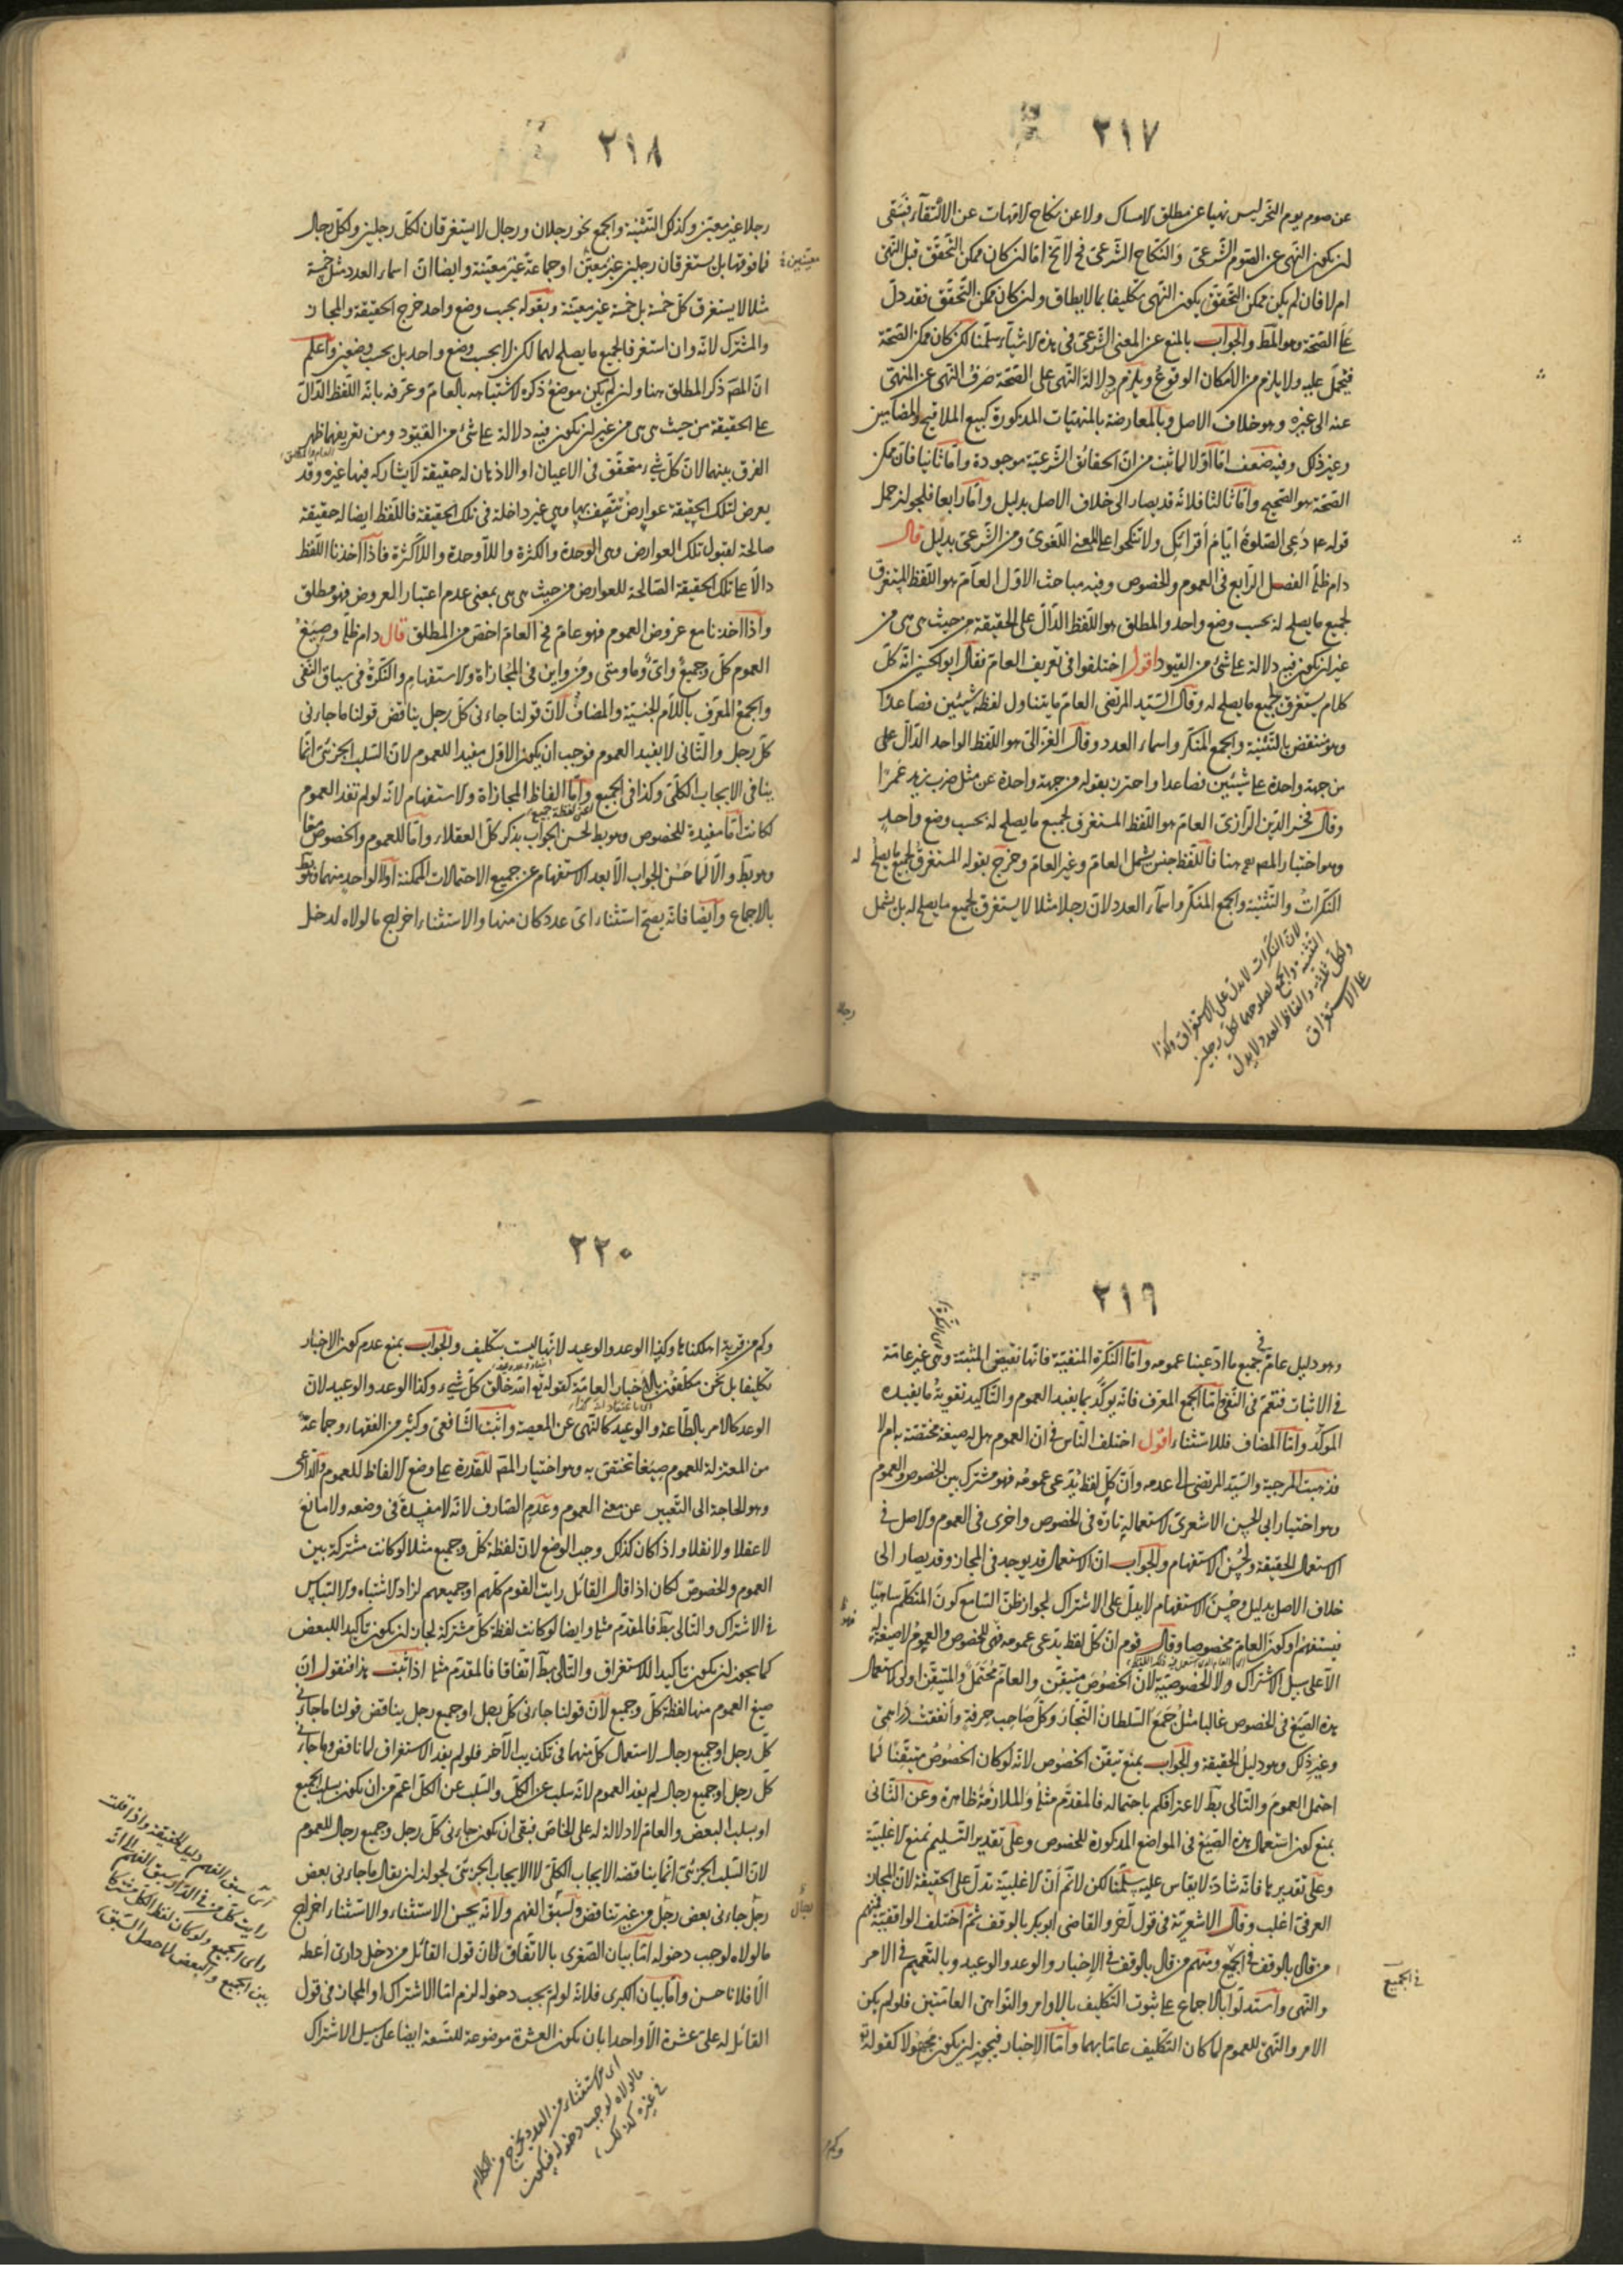 ٢١٧
عن صوم يوم النحر ليس نهيا عن مطلق الامساك ولا عن نكاح الامهات عن الالتقاء فبقى
ان يكون النهى عن الصوم الشرعى والنكاح الشرعى فح لا يخ اما ان كان ممكن التحقق قبل النهى
ام لا فان لم يكن ممكن التحقق يكون النهى تكليفا بما لا يطاق وان كان ممكن التحقق فقد دل
على الصحة وهو المط والجواب بالمنع عن المعنى الشرعى فى هذه الاشياء سلمنا لكن كان ممكن الصحة
فيحمل عليه ولا يلزم من الامكان الوقوع ويلزم دلالة النهى على الصحة صرف النهى عن المنهى
عنه الى غيره وهو خلاف الاصل وبالمعارضة بالمنهيات المذكورة كبيع الملاقيح والمضامين
وغير ذلك وفيه ضعف اما اولا لما ثبت من ان الحقائق الشرعية موجودة واما ثانيا فان ممكن
الصحة هو الصحيح واما ثالثا فلانه قد يصار الى خلاف الاصل بدليل واما رابعا فلجواز حمل
قوله عم دعى الصلوة ايام أقرائك ولا تنكحوا على المعنى اللغوى ومن الشرعى بدليل قال
دام ظله الفصل الرابع فى العموم والخصوص وفيه مباحث الاول العام هو اللفظ المستغرق
لجميع ما يصلح له بحسب وضع واحد والمطلق هو اللفظ الدال على الحقيقة من حيث هى هى من
غير ان يكون فيه دلالة على شئ من القيود اقول اختلفوا فى تعريف العام فقال ابو الحسين انه كل
كلام يستغرق لجميع ما يصلح له وقال السيد المرتضى العام ما يتناول لفظه شيئين فصاعدا
وهو منتقض بالتثنية والجمع المنكر واسماء العدد وقال الغزالى هو اللفظ الواحد الدال على
من جهة واحدة على شيئين فصاعدا واحترز بقوله من جهة واحدة عن مثل ضرب زيد عمرا
وقال فخر الدين الرازى العام هو اللفظ المستغرق لجميع ما يصلح له بحسب وضع واحد
وهو اختيار المص هيهنا فاللفظ جنس شمل العام وغير العام وخرج بقوله المستغرق لجميع ما يصلح له
النكرات والتثنية والجمع المنكر واسماء العدد لان رجلا مثلا لا يستغرق لجميع ما يصلح له بل يشمل
لان النكرات لا يدل على الاستغراق وكذا
التثنية والجمع لصلوحهما لكل رجلين
ولكل ثلثة والفاظ العدد لا يدل
على الاستغراق
رجلا
٢١٨
رجلا غير معين وكذلك التثنية والجمع نحو رجلان ورجال لا يستغرقان لكل رجلين ولكل رجال
فما فوقها بل يستغرقان رجلين غير معين او جماعة غير معينة وايضا ان اسماء العدد مثل خمسة
معينين
مثلا لا يستغرق كل خمسة بل خمسة غير معينة وبقوله بحسب وضع واحد خرج الحقيقة والمجاز
والمشترك لانه وان استغرق الجميع ما يصلح لهما لكن لا بحسب وضع واحد بل بحسب وضعين واعلم
ان المص ذكر المطلق هنا وان لم يكن موضع ذكره لاشتباهه بالعام وعرفه بانه اللفظ الدال
على الحقيقة من حيث هى هى من غير ان يكون فيه دلالة على شئ من القيود ومن تعريفهما ظهر
العام والمطلق
الفرق بينهما لان كل شئ متحقق فى الاعيان او الاذهان له حقيقة لا يشاركه فيها غيره وقد
يعرض لتلك الحقيقة عوارض تتصف بها وهى غير داخلة فى تلك الحقيقة فاللفظ ايضا له حقيقة
صالحة لقبول تلك العوارض وهى الوحدة والكثرة واللاوحدة واللاكثرة فاذا اخذنا اللفظ
دالا على تلك الحقيقة الصالحة للعوارض من حيث هى هى بمعنى عدم اعتبار العروض فهو مطلق
واذا اخذنا مع عروض العموم فهو عام فح العام اخص من المطلق قال دام ظله وصيغ
العموم كل وجميع واى وما ومتى ومن واين فى المجازاة والاستفهام والنكرة فى سياق النفى
والجمع المعرف باللام الجنسية والمضاف لان قولنا جاءنى كل رجل يناقض قولنا ما جاءنى
كل رجل والثانى لا يفيد العموم فوجب ان يكون الاول مفيدا للعموم لان السلب الجزئى انما
ينافى الايجاب الكلى وكذا فى الجميع واما الفاظ المجازاة والاستفهام لانه لو لم تفد العموم
اعنى لفظة جميع
لكانت اما مفيدة للخصوص وهو بط لحسن الجواب بذكر كل العقلاء واما للعموم والخصوص معا
وهو بط والا لما حسن الجواب الا بعد الاستفهام عن جميع الاحتمالات الممكنة او لا لواحد منهما وهو بط
بالاجماع وايضا فانه يصح استثناء اى عدد كان منها والاستثناء اخراج ما لولاه لدخل
٢١٩
وهو دليل عام فى جميع ما ادعينا عمومه واما النكرة المنفية فانها نقيض المثبتة وهى غير عامة
فى الاثبات فتعم فى النفى اما الجمع المعرف فانه يوكد بما يفيد العموم والتاكيد تقوية ما يفيده
الموكد واما المضاف فللاستثناء اقول اختلف الناس فى ان العموم هل له صيغة مختصة به ام لا
فذهبت المرجية والسيد المرتضى الى عدمه وان كل لفظ يدعى عمومه فهو مشترك بين الخصوص والعموم
وهو اختيار ابى الحسن الاشعرى لاستعماله تارة فى الخصوص واخرى فى العموم والاصل فى
الاستعمال الحقيقة ولحسن الاستفهام والجواب ان الاستعمال قد يوجد فى المجاز وقد يصار الى
خلاف الاصل بدليل وحسن الاستفهام لا يدل على الاشتراك لجواز ظن السامع كون المتكلم ساهيا
فيستفهم او كون العام مخصوصا وقال قوم ان كل لفظ يدعى عمومه فهى للخصوص والعموم لا صيغة له
الا على سبيل الاشتراك ولا لخصوصية لان الخصوص متيقن والعام محتمل والمتيقن اولى لاستعمال
هذه الصيغ فى الخصوص غالبا مثل جمع السلطان التجار وكل صاحب حرفة وأنفقت دراهمى
وغير ذلك وهو دليل الحقيقة والجواب بمنع تيقن الخصوص لانه لو كان الخصوص متيقنا لما
احتمل العموم والتالى بط لاعترافكم باحتماله فالمقدم مثله والملازمة ظاهرة وعن الثانى
بمنع كون استعمال هذه الصيغ فى المواضع المذكورة للخصوص وعلى تقدير التسليم نمنع الاغلبية
وعلى تقديرها فانه شاذ لا يقاس عليه سلمنا لكن لانم أن الاغلبية تدل على الحقيقة لان المجاز
العرفى اغلب وقال الاشعرية فى قول آخر والقاضى ابو بكر بالوقف ثم اختلف الواقفية فمنهم
من قال بالوقف فى الجميع ومنهم من قال بالوقف فى الاخبار والوعد والوعيد وبالتعميم فى الامر
فى الجميع
والنهى واستدلوا بالاجماع على ثبوت التكليف بالاوامر والنواهى العامتين فلو لم يكن
الامر والنهى للعموم لما كان التكليف عاما بهما واما الاخبار فيجوز ان يكون مجهولا كقوله تع
وكم
٢٢٠
وكم من قرية اهلكناها وكذا الوعد والوعيد لانها ليست بتكليف والجواب بمنع عدم كون الاخبار
تكليفا بل نحن مكلفون بالاخبار العامة كقوله تع الله خالق كل شىء وكذا الوعد والوعيد لان
الوعد كالامر بالطاعة والوعيد كالنهى عن المعصية واثبت الشافعى وكثير من الفقهاء وجماعة
من المعتزلة للعموم صيغا تختص به وهو اختيار المص للقدرة على وضع الالفاظ للعموم والداعى
وهو الحاجة الى التعبير عن معنى العموم وعدم الصارف لانه لا مفسدة فى وضعه ولا مانع
لا عقلا ولا نقلا واذا كان كذلك وجب الوضع لان لفظة كل وجميع مثلا لو كانت مشتركة بين
العموم والخصوص لكان اذا قال القائل رايت القوم كلهم او جميعهم لزاد الاشتباه والالتباس
فى الاشتراك والتالى بط فالمقدم مثله وايضا لو كانت لفظة كل مشتركة لجاز ان يكون تاكيدا للبعض
كما يجوز ان يكون تاكيدا للاستغراق والتالى بط اتفاقا فالمقدم مثله اذا ثبت هذا فنقول ان
صيغ العموم منها لفظة كل وجميع لان قولنا جاءنى كل رجل او جميع رجل يناقض قولنا ما جاءنى
كل رجل او جميع رجال لاستعمال كل منهما فى تكذيب الآخر فلو لم يفد الاستغراق لما ناقض وما جاءنى
كل رجل او جميع رجال لم يفد العموم لانه سلب عن الكل والسلب عن الكل اعم من ان يكون بسلب الجميع
او بسلب البعض والعام لا دلالة له على الخاص فبقى ان يكون جاءنى كل رجل وجميع رجال للعموم
لان السلب الجزئى انما يناقضه الايجاب الكلى لا الايجاب الجزئى لجواز ان يقال ما جاءنى بعض
رجل جاءنى بعض رجل من غير تناقض ولسبق الفهم ولانه يحسن الاستثناء والاستثناء اخراج
رجال
ما لولاه لوجب دخوله اما بيان الصغرى بالاتفاق فلان قول القائل من دخل دارى أعطه
الا فلانا حسن واما بيان الكبرى فلانه لو لم يجب دخوله لزم اما الاشتراك او المجاز فى قول
القائل له على عشرة الا واحدا بان يكون العشرة موضوعة للتسعة ايضا على سبيل الاشتراك
اى سبق الفهم دليل الحقيقة واذا قلت
رايت كل من فى الدار سبق الفهم الى انه
راى الجميع ولو كان لفظ الكل مشتركا
بين الجميع والبعض لما حصل السبق
اى الاستثناء من العدد يخرج من الكلام
ما لولاه لوجب دخوله فيكون
فى غيره كذلك